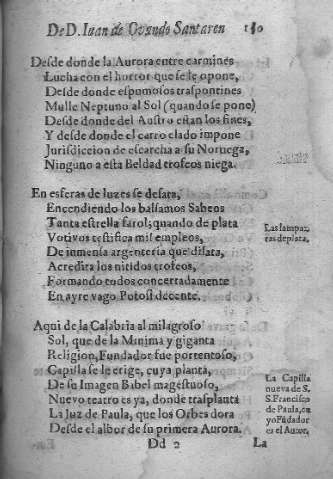 De D. Iuan de Ovando Santaren 150
Desde donde la Aurora entre carmines
Lucha con el horror que se le opone,
Desde donde espumosos traspontines
Mulle Neptuno al Sol (quando se pone)
Desde donde del Austro estan los fines,
Y desde donde el carro elado impone
Jurisdiccion de escarcha a su Noruega,
Ninguno a esta Beldad trofeos niega.
En esferas de luzes se desata,
Encendiendo los balsamos Sabeos
Tanta estrella farol; quando de plata
Votivos testifica mil empleos,
Las lampa-
ras de plata.
De inmensa argenteria que dilata,
Acredita los nitidos trofeos,
Formando todos concertadamente
En ayre vago Potosi decente.
Aqui de la Calabria al milagroso
Sol, que de la Minima y giganta
Religion, Fundador fue portentoso,
Capilla se le erige, cuya planta,
De su Imagen Babel magestuoso,
Nuevo teatro es ya, donde trasplanta
La Juz de Paula, que los Orbes dora
Desde el albor de su primera Aurora.
La Capilla
nueva de S.
Francisco
de Paula, cu
yo Fũdador
es el Autor.
Dd 2 La